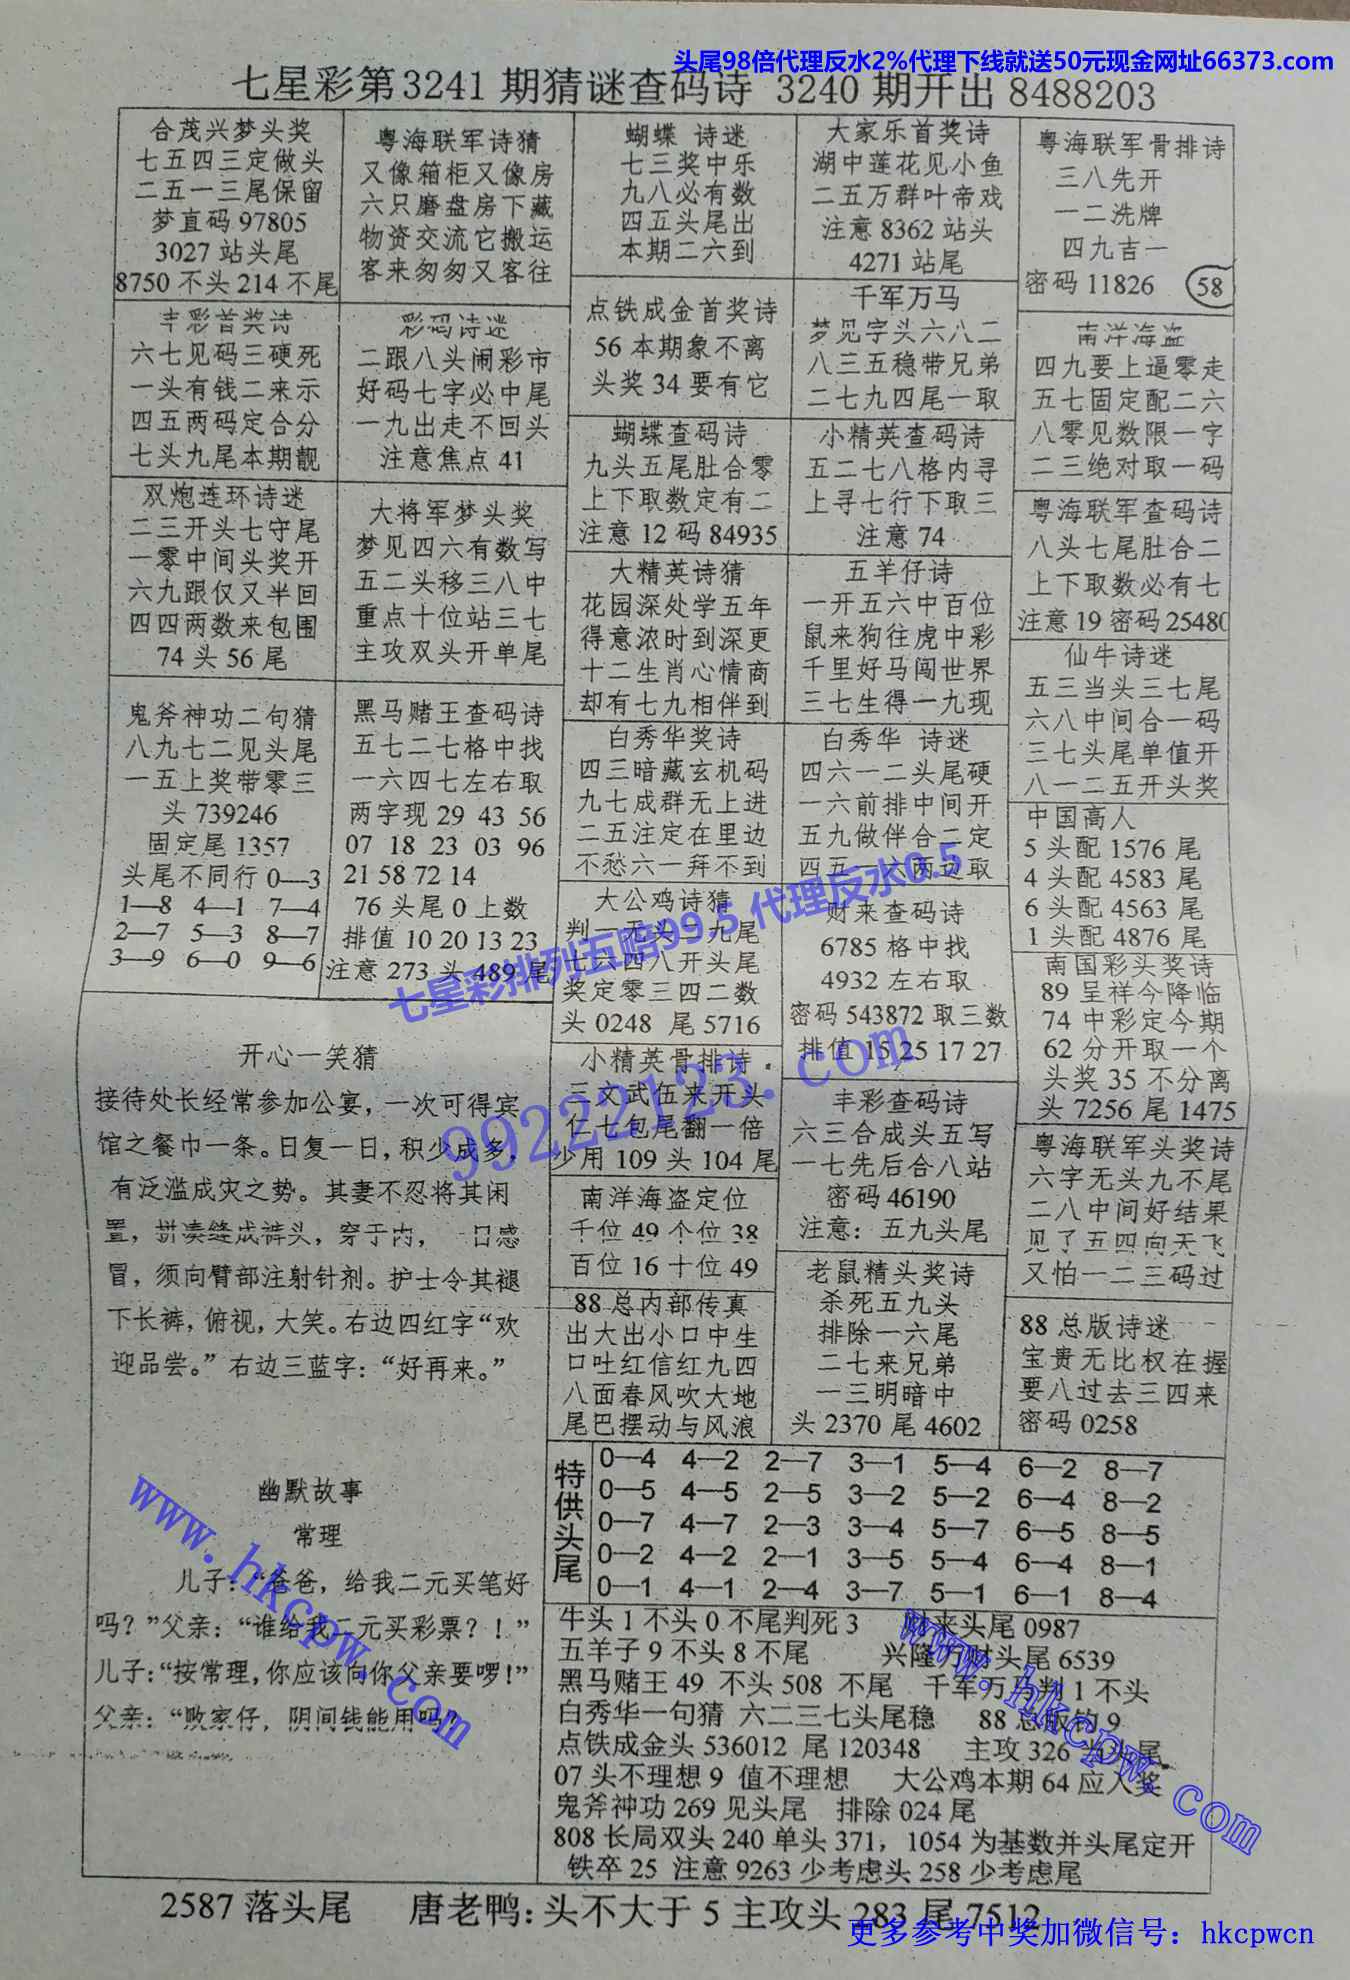 头尾98倍代理反水2%代理下线就送50元现金网址66373.com
七星彩第3241期猜谜查码诗 3240期开出8488203
合茂兴梦头奖
七五四三定做头
二五一三尾保留
梦直码 97805
3027 站头尾
8750 不头 214 不尾
丰彩首奖诗
六七见码三硬死
一头有钱二来示
四五两码定合分
七头九尾本期靓
双炮连环诗迷
二三开头七守尾
一零中间头奖开
六九跟仅又半回
四四两数来包围
74 头 56 尾
鬼斧神功二句猜
八九七二见头尾
一五上奖带零三
头 739246
固定尾 1357
头尾不同行 0—3
1—8 4—1 7—4
2—7 5—3 8—7
3—9 6—0 9—6
粤海联军诗猜
又像箱柜又像房
六只磨盘房下藏
物资交流它搬运
客来匆匆又客往
彩码诗迷
二跟八头闹彩市
好码七字必中尾
一九出走不回头
注意焦点 41
大将军梦头奖
梦见四六有数写
五二头移三八中
重点十位站三七
主攻双头开单尾
黑马赌王查码诗
五七二七格中找
一六四七左右取
两字现 29 43 56
07 18 23 03 96
21 58 72 14
76 头尾 0 上数
排值 10 20 13 23
注意 273 头 489 尾
蝴蝶 诗迷
七三奖中乐
九八必有数
四五头尾出
本期二六到
点铁成金首奖诗
56 本期象不离
头奖 34 要有它
蝴蝶查码诗
九头五尾肚合零
上下取数定有二
注意 12 码 84935
大精英诗猜
花园深处学五年
得意浓时到深更
十二生肖心情商
却有七九相伴到
白秀华奖诗
四三暗藏玄机码
九七成群无上进
二五注定在里边
不愁六一拜不到
大公鸡诗猜
判一无头 九尾
七六四八开头尾
奖定零三四二数
头 0248 尾 5716
小精英骨排诗
三文武伍来开头
仁七包尾翻一倍
少用 109 头 104 尾
南洋海盗定位
千位 49 个位 38
百位 16 十位 49
88 总内部传真
出大出小口中生
口吐红信红九四
八面春风吹大地
尾巴摆动与风浪
大家乐首奖诗
湖中莲花见小鱼
二五万群叶帝戏
注意 8362 站头
4271 站尾
千军万马
梦见字头六八二
八三五稳带兄弟
二七九四尾一取
小精英查码诗
五二七八格内寻
上寻七行下取三
注意 74
五羊仔诗
一开五六中百位
鼠来狗往虎中彩
千里好马闯世界
三七生得一九现
白秀华 诗迷
四六一二头尾硬
一六前排中间开
五九做伴合二定
四五一六两边取
财来查码诗
6785 格中找
4932 左右取
密码 543872 取三数
排值 15 25 17 27
丰彩查码诗
六三合成头五写
一七先后合八站
密码 46190
注意：五九头尾
老鼠精头奖诗
杀死五九头
排除一六尾
二七来兄弟
一三明暗中
头 2370 尾 4602
粤海联军骨排诗
三八先开
一二洗牌
四九吉一
密码 11826 58
南洋海盗
四九要上逼零走
五七固定配二六
八零见数限一字
二三绝对取一码
粤海联军查码诗
八头七尾肚合二
上下取数必有七
注意 19 密码 25480
仙牛诗迷
五三当头三七尾
六八中间合一码
三七头尾单值开
八一二五开头奖
中国高人
5 头配 1576 尾
4 头配 4583 尾
6 头配 4563 尾
1 头配 4876 尾
南国彩头奖诗
89 呈祥今降临
74 中彩定今期
62 分开取一个
头奖 35 不分离
头 7256 尾 1475
粤海联军头奖诗
六字无头九不尾
二八中间好结果
见了五四向天飞
又怕一二三码过
88 总版诗迷
宝贵无比权在握
要八过去三四来
密码 0258
开心一笑猜
接待处长经常参加公宴，一次可得宾
馆之餐巾一条。日复一日，积少成多，
有泛滥成灾之势。其妻不忍将其闲
置，拼凑缝成裤头，穿于内， 一日感
冒，须向臂部注射针剂。护士令其褪
下长裤，俯视，大笑。右边四红字“欢
迎品尝。”右边三蓝字：“好再来。”
幽默故事
常理
儿子：“爸爸，给我二元买笔好
吗？”父亲：“谁给我二元买彩票？！”
儿子：“按常理，你应该向你父亲要啰！”
父亲：“败家仔，阴间钱能用吗？
特供头尾
0—4 4—2 2—7 3—1 5—4 6—2 8—7
0—5 4—5 2—5 3—2 5—2 6—4 8—2
0—7 4—7 2—3 3—4 5—7 6—5 8—5
0—2 4—2 2—1 3—5 5—4 6—4 8—1
0—1 4—1 2—4 3—7 5—1 6—1 8—4
牛头 1 不头 0 不尾判死 3 财来头尾 0987
五羊子 9 不头 8 不尾 兴隆万财头尾 6539
黑马赌王 49 不头 508 不尾 千军万马判 1 不头
白秀华一句猜 六二三七头尾稳 88 总版钓 9
点铁成金头 536012 尾 120348 主攻 326 当头尾
07 头不理想 9 值不理想 大公鸡本期 64 应入奖
鬼斧神功 269 见头尾 排除 024 尾
808 长局双头 240 单头 371，1054 为基数并头尾定开
铁卒 25 注意 9263 少考虑头 258 少考虑尾
2587 落头尾 唐老鸭：头不大于 5 主攻头 283 尾 7512
七星彩排列五赔99.5 代理反水0.5
99222123.com
www.hkcpw.com
www.hkcpw.com
更多参考中奖加微信号：hkcpwcn